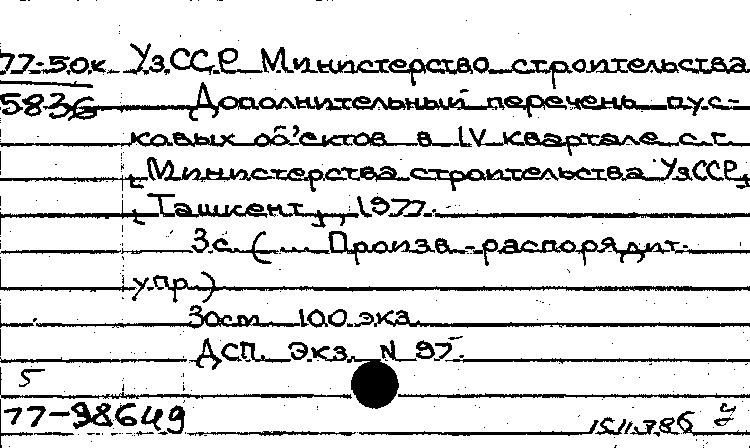 77-50к УзССР Министерство строительства
583б Дополнительный перечень пус-
ковых об'ектов в IV квартале с.г.
[Министерства строительства УзССР]
[Ташкент], 1977.
3с. (... Произв.-распорядит.
упр.)
Зост. 100 экз.
ДСП. Экз. N 95.
5
77-98649